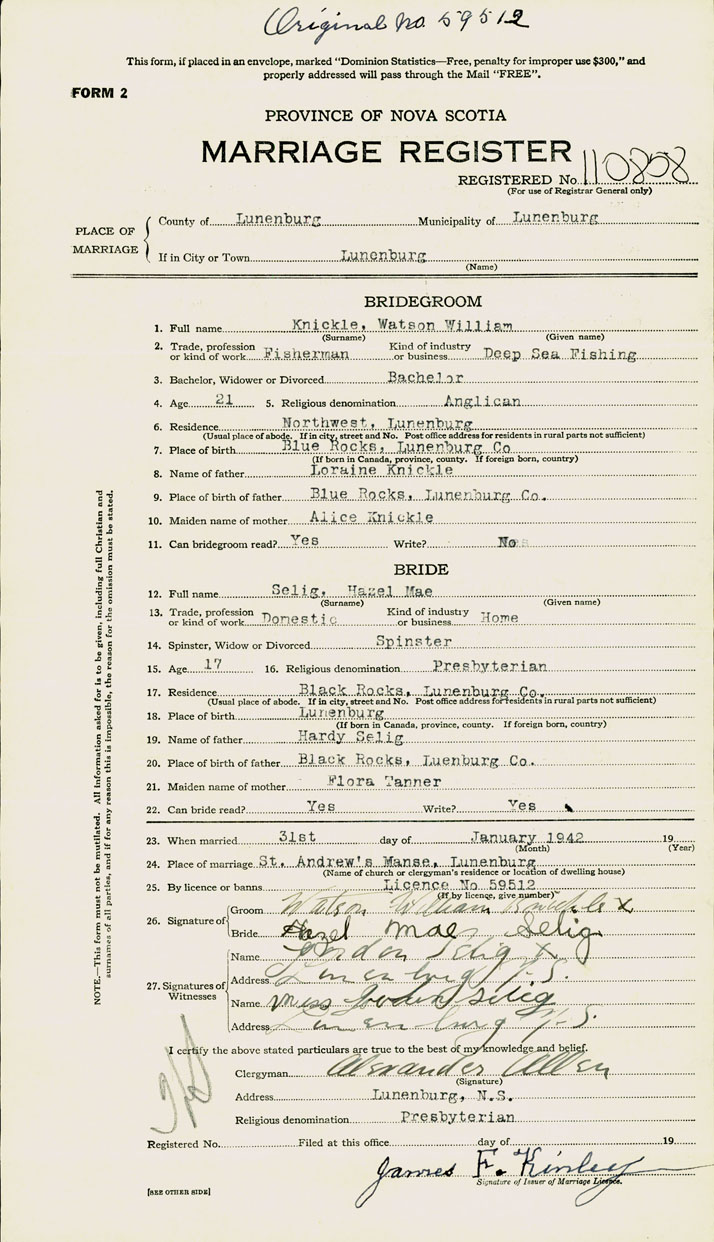 Original No 59512
This form, if placed in an envelope, marked “Dominion Statistics—Free, penalty for improper use $300,” and
properly addressed will pass through the Mail “FREE”.
FORM 2
PROVINCE OF NOVA SCOTIA
MARRIAGE REGISTER
REGISTERED No. 110858
(For use of Registrar General only)
PLACE OF MARRIAGE
County of Lunenburg Municipality of Lunenburg
If in City or Town Lunenburg
(Name)
BRIDEGROOM
1. Full name Knickle, Watson William
(Surname) (Given name)
2. Trade, profession or kind of work Fisherman Kind of industry or business Deep Sea Fishing
3. Bachelor, Widower or Divorced Bachelor
4. Age 21 5. Religious denomination Anglican
6. Residence Northwest, Lunenburg
(Usual place of abode. If in city, street and No. Post office address for residents in rural parts not sufficient)
7. Place of birth Blue Rocks, Lunenburg Co
(If born in Canada, province, county. If foreign born, country)
8. Name of father Loraine Knickle
9. Place of birth of father Blue Rocks, Lunenburg Co.
10. Maiden name of mother Alice Knickle
11. Can bridegroom read? Yes Write? No
BRIDE
12. Full name Selig, Hazel Mae
(Surname) (Given name)
13. Trade, profession or kind of work Domestic Kind of industry or business Home
14. Spinster, Widow or Divorced Spinster
15. Age 17 16. Religious denomination Presbyterian
17. Residence Black Rocks, Lunenburg Co.
(Usual place of abode. If in city, street and No. Post office address for residents in rural parts not sufficient)
18. Place of birth Lunenburg
(If born in Canada, province, county. If foreign born, country)
19. Name of father Hardy Selig
20. Place of birth of father Black Rocks, Luenburg Co.
21. Maiden name of mother Flora Tanner
22. Can bride read? Yes Write? Yes
23. When married 31st day of January 1942 19
(Month) (Year)
24. Place of marriage St. Andrew's Manse, Lunenburg
(Name of church or clergyman's residence or location of dwelling house)
25. By licence or banns Licence No 59512
(If by licence, give number)
26. Signature of
Groom Watson William Knickle x
Bride Hazel Mae Selig
27. Signatures of Witnesses
Name Selig x
Address Lunenburg N.S.
Name Miss Selig
Address Lunenburg N.S.
I certify the above stated particulars are true to the best of my knowledge and belief.
Clergyman Alexander Allen
(Signature)
Address Lunenburg, N.S.
Religious denomination Presbyterian
Registered No. Filed at this office day of 19
James F. Kinley
Signature of Issuer of Marriage Licence.
[SEE OTHER SIDE]
NOTE.—This form must not be mutilated. All information asked for is to be given, including full Christian and
surnames of all parties, and if for any reason this is impossible, the reason for the omission must be stated.